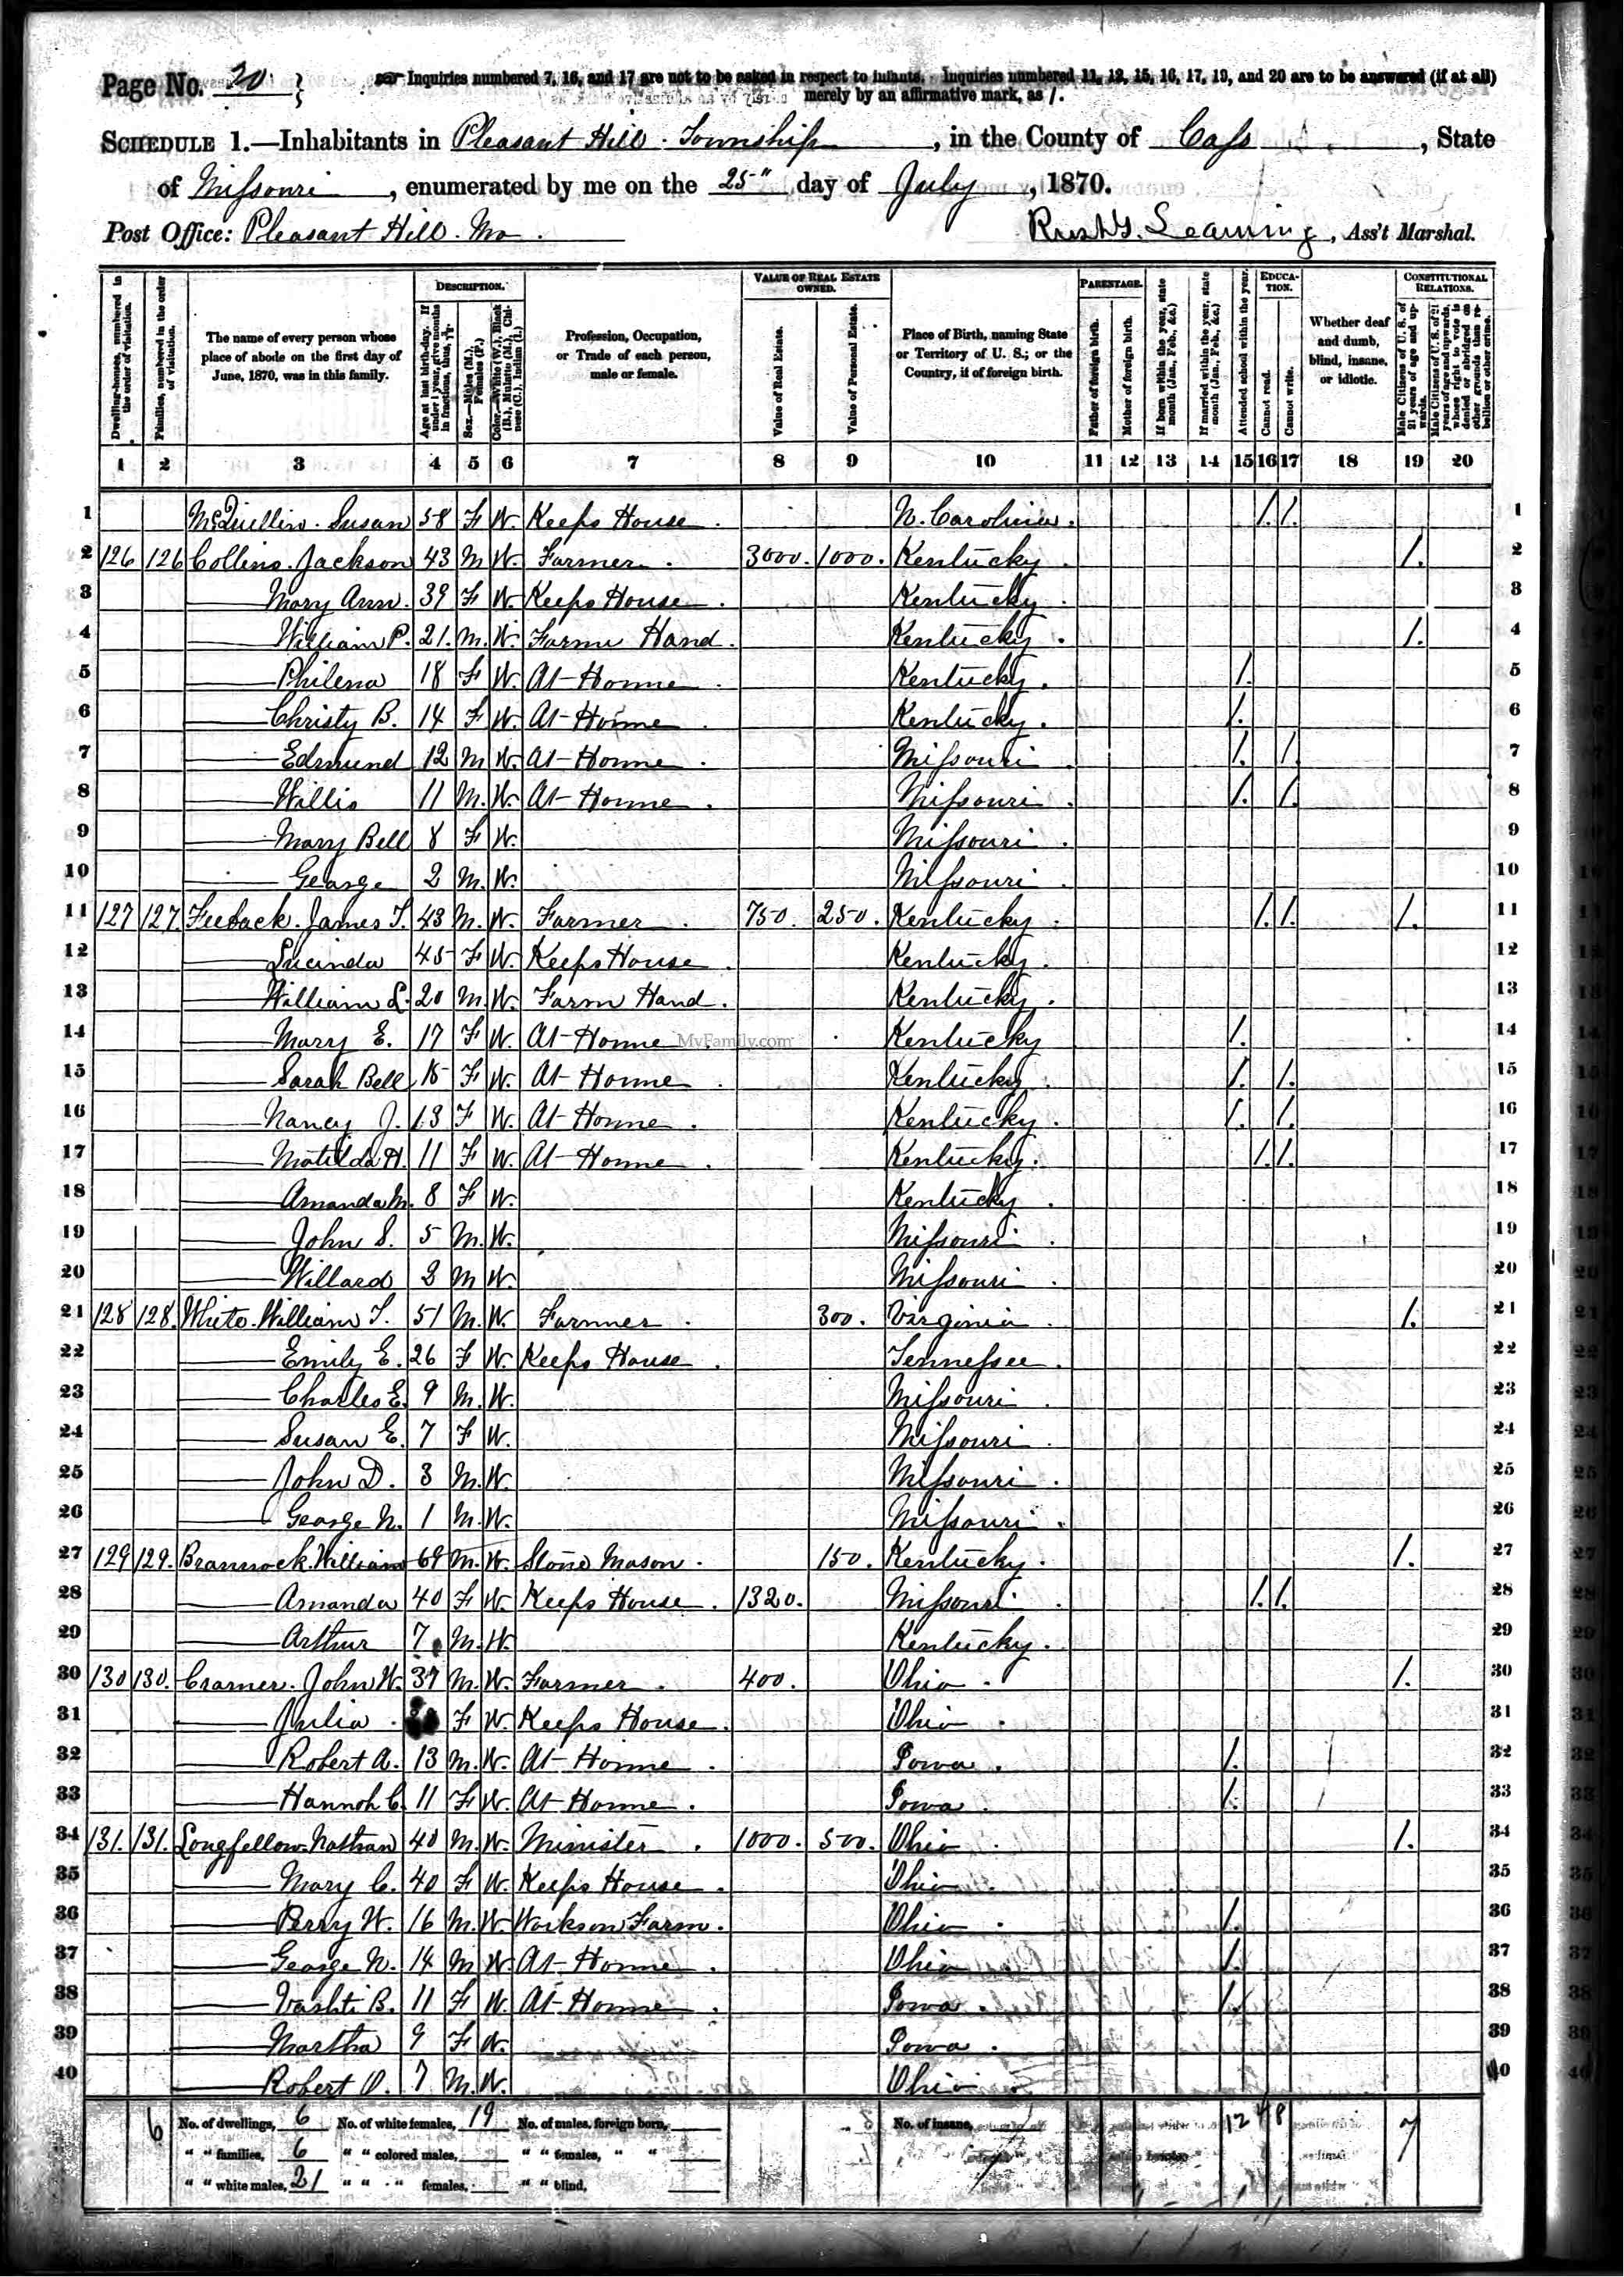 Page No. 20
Inquiries numbered 7, 16, and 17 are not to be asked in respect to infants. Inquiries numbered 11, 12, 15, 16, 17, 19, and 20 are to be answered (if at all)
merely by an affirmative mark, as /.
SCHEDULE 1.—Inhabitants in Pleasant Hill Township, in the County of Cass, State
of Missouri, enumerated by me on the 25" day of July, 1870.
Post Office: Pleasant Hill Mo. Leaming, Ass't Marshal.
Dwelling-houses, numbered in the order of visitation.
Families, numbered in the order of visitation.
The name of every person whose place of abode on the first day of June, 1870, was in this family.
DESCRIPTION.
Age at last birth-day. If under 1 year, give months in fractions, thus, 3/12
Sex.—Males (M.), Females (F.)
Color.—White (W.), Black (B.), Mulatto (M.), Chinese (C.), Indian (I.)
Profession, Occupation, or Trade of each person, male or female.
VALUE OF REAL ESTATE OWNED.
Value of Real Estate.
Value of Personal Estate.
Place of Birth, naming State or Territory of U. S.; or the Country, if of foreign birth.
PARENTAGE.
Father of foreign birth.
Mother of foreign birth.
If born within the year, state month (Jan., Feb., &c.)
If married within the year, state month (Jan., Feb., &c.)
Attended school within the year.
EDUCATION.
Cannot read.
Cannot write.
Whether deaf and dumb, blind, insane, or idiotic.
CONSTITUTIONAL RELATIONS.
Male Citizens of U. S. of 21 years of age and upwards.
Male Citizens of U. S. of 21 years of age and upwards, whose right to vote is denied or abridged on other grounds than rebellion or other crime.
1 2 3 4 5 6 7 8 9 10 11 12 13 14 15 16 17 18 19 20
1 McQuillin. Susan 58 F W. Keeps House. N. Carolina. /. /. 1
2 126 126 Collins. Jackson 43 M W. Farmer. 3000. 1000. Kentucky. /. 2
3 —— Mary Ann. 39 F W. Keeps House. Kentucky. 3
4 —— William P. 21. M. W. Farm Hand. Kentucky. /. 4
5 —— Philena 18 F W. At Home. Kentucky. /. 5
6 —— Christy B. 14 F W. At Home. Kentucky. /. 6
7 —— Edmund 12 M W. At Home. Missouri /. /. 7
8 —— Willis 11 M. W. At Home. Missouri. /. /. 8
9 —— Mary Bell 8 F W. Missouri. 9
10 —— George 2 M. W. Missouri. 10
11 127 127. Feeback. James T. 43 M. W. Farmer. 750. 250. Kentucky. /. /. /. 11
12 —— Lucinda 45 F W. Keeps House. Kentucky. 12
13 —— William L. 20 M. W. Farm Hand. Kentucky. 13
14 —— Mary E. 17 F W. At Home. Kentucky /. 14
MyFamily.com
15 —— Sarah Bell 15 F W. At Home. Kentucky. /. /. 15
16 —— Nancy J. 13 F W. At Home. Kentucky. /. /. 16
17 —— Matilda H. 11 F W. At Home. Kentucky. /. /. 17
18 —— Amanda M. 8 F W. Kentucky. 18
19 —— John S. 5 M. W. Missouri. 19
20 —— Willard 3 M W. Missouri. 20
21 128 128. White. William T. 51 M. W. Farmer. 300. Virginia. /. 21
22 —— Emily E. 26 F W. Keeps House. Tennessee. 22
23 —— Charles E. 9 M. W. Missouri. 23
24 —— Susan E. 7 F W. Missouri. 24
25 —— John D. 3 M. W. Missouri. 25
26 —— George N. 1 M. W. Missouri. 26
27 129 129. Brannock. William 69 M. W. Stone Mason. 150. Kentucky. /. 27
28 —— Amanda 40 F W. Keeps House. 1320. Missouri. /. /. 28
29 —— Arthur 7 M. W. Kentucky. 29
30 130 130. Cramer. John W. 37 M. W. Farmer. 400. Ohio. /. 30
31 —— Julia. F W. Keeps House. Ohio. 31
32 —— Robert A. 13 M. W. At Home. Iowa. /. 32
33 —— Hannah C. 11 F W. At Home. Iowa. /. 33
34 131. 131. Longfellow. Nathan 40 M. W. Minister. 1000. 500. Ohio. /. 34
35 —— Mary C. 40 F W. Keeps House. Ohio. 35
36 —— Perry W. 16 M. W. Works on Farm. Ohio. /. 36
37 —— George N. 14 M W. At Home. Ohio. /. 37
38 —— Vashti B. 11 F W. At Home. Iowa. /. 38
39 —— Martha 9 F W. Iowa. 39
40 —— Robert O. 7 M. W. Ohio. 40
6 No. of dwellings, 6 No. of white females, 19 No. of males, foreign born, No. of insane, 12 4 8 7
" " families, 6 " " colored males, " " females, " "
" " white males, 21 " " " females, " " blind,